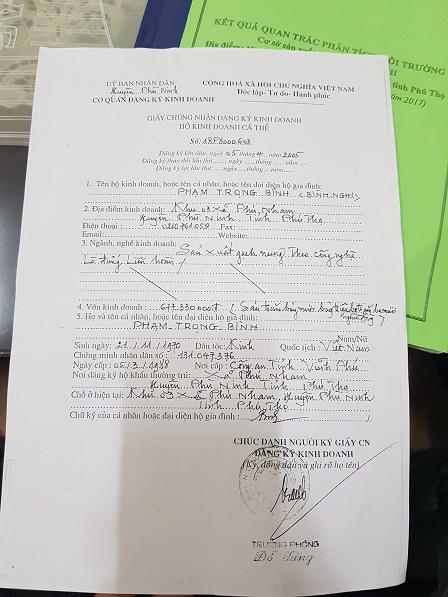 KẾT QUẢ QUAN TRẮC PHÂN TÍCH MÔI TRƯỜNG
Cơ sở sản
tỉnh Phú Thọ
2017)
UỶ BAN NHÂN DÂN
Huyện Phù Ninh
CƠ QUAN ĐĂNG KÝ KINH DOANH
CỘNG HOÀ XÃ HỘI CHỦ NGHĨA VIỆT NAM
Độc lập- Tự do- Hạnh phúc
GIẤY CHỨNG NHẬN ĐĂNG KÝ KINH DOANH
HỘ KINH DOANH CÁ THỂ
Số:
Đăng ký lần đầu, ngày 05 tháng 4 năm 2005
Đăng ký thay đổi lần thứ ...... ngày ...... tháng ...... năm
Đăng ký lại lần thứ ...... ngày ...... tháng ...... năm
1. Tên hộ kinh doanh, hoặc tên cá nhân, hoặc tên đại diện hộ gia đình:
PHẠM TRỌNG BÌNH (BÌNH NGHỊ)
2. Địa điểm kinh doanh: Khu 03 Xã Phú Nham
Huyện Phù Ninh Tỉnh Phú Thọ
Điện thoại: 0210 761 059 Fax:
Email: Website:
3. Ngành, nghề kinh doanh: Sản xuất gạch nung theo công nghệ
Lò đứng, Liên hoàn
4. Vốn kinh doanh: 677.330.000đ
5. Họ và tên cá nhân, hoặc tên đại diện hộ gia đình:
PHẠM TRỌNG BÌNH Nam/Nữ
Sinh ngày: 21/11/1970 Dân tộc: Kinh Quốc tịch: Việt Nam
Chứng minh nhân dân số: 131.047.376
Ngày cấp: 05/3/1988 Nơi cấp: Công an Tỉnh Vĩnh Phú
Nơi đăng ký hộ khẩu thường trú: Xã Phú Nham
Huyện Phù Ninh Tỉnh Phú Thọ
Chỗ ở hiện tại: Khu 03 Xã Phú Nham, Huyện Phù Ninh
Tỉnh Phú Thọ
Chữ ký của cá nhân hoặc đại diện hộ gia đình:
CHỨC DANH NGƯỜI KÝ GIẤY CN
ĐĂNG KÝ KINH DOANH
(Ký, đóng dấu và ghi rõ họ tên)
TRƯỞNG PHÒNG
Đỗ Sáng